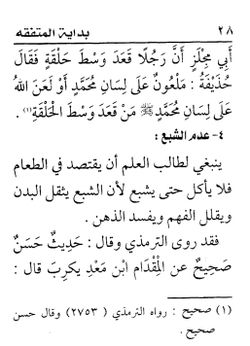 ٢٨ بداية المتفقه
أَبِي مِجْلَزٍ أَنَّ رَجُلًا قَعَدَ وَسَطَ حَلْقَةٍ فَقَالَ
حُذَيْفَةُ : مَلْعُونٌ عَلَى لِسَانِ مُحَمَّدٍ أَوْ لَعَنَ اللهُ
عَلَى لِسَانِ مُحَمَّدٍ ﷺ مَنْ قَعَدَ وَسَطَ الْحَلْقَةِ(١) .
٤- عدم الشبع :
ينبغي لطالب العلم أن يقتصد في الطعام
فلا يأكل حتى يشبع لأن الشبع يثقل البدن
ويقلل الفهم ويفسد الذهن .
فقد روى الترمذي وقال : حَدِيثٌ حَسَنٌ
صَحِيحٌ عن المِقْدَامِ ابْنِ مَعْدِ يكربَ قال :
(١) صحيح : رواه الترمذي ( ٢٧٥٣ ) وقال حسن
صحيح .